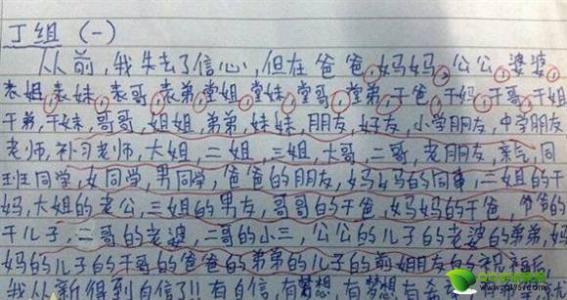 丁组 (一)
从前,我失去了信心,但在爸爸,妈妈,公公,婆婆,
表姐,表妹,表哥,表弟,堂姐,堂妹,堂哥,堂弟,干爸,干妈,干哥,干姐
干弟,干妹,哥哥,姐姐,弟弟,妹妹,朋友,好友,小学朋友,中学朋友
老师,补习老师,大姐,二姐,三姐,大哥,二哥,老朋友,亲气,同
班同学,女同学,男同学,爸爸的朋友,妈妈的同事,二姐的干
妈,大姐的老公,三姐的男友,哥哥的干爸,妈妈的干爸,爷爷的
干儿子,二哥的老婆,二哥的小三,公公的儿子的老婆的弟弟,妈
妈的儿子的干哥的爸爸的弟弟的儿子的前姐朋友的祝福后
我从新得到自信了!!有自信,有梦想